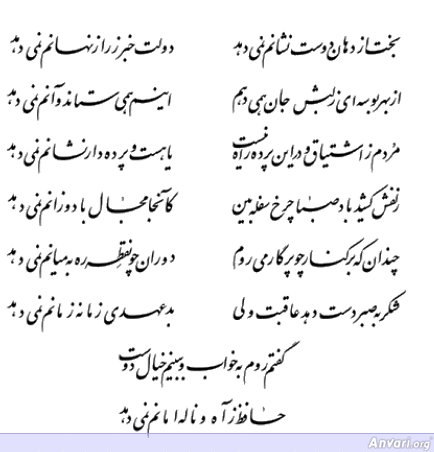 بختـ از دهان دوست نشانم نمی دهد دولت خبر ز راز نهـانم نمی دهد
از بهر بوسه ای ز لبش جان همی دهم اینـم همی ستـاند و آنم نمی دهد
مُردم ز اشتیاق و در این پرده راه نیست یا هست و پرده دار نشـانم نمی دهد
زلفش کشید باد صبـا چرخ سفله بین کآنجا مجـال بادوزانم نمی دهد
چندان که بر کنـار چو پرگار می روم دوران چو نقطـه ره به میانم نمی دهد
شکر به صبر دست دهد عاقبت ولی بدعهـدی زمانه زمانم نمی دهد
گفتم روم به خواب و ببینم خیال دوست
حـافظ ز آه و ناله امانم نمی دهد
Anvari.org